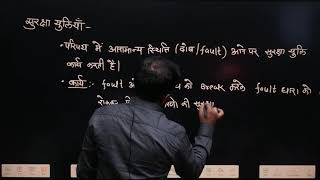 सुरक्षा युक्तियाँ :-
• परिपथ में असामान्य स्थिति (दोष/fault) आने पर सुरक्षा युक्ति
कार्य करती है।
• कार्य:- fault को Break करके fault धारा को